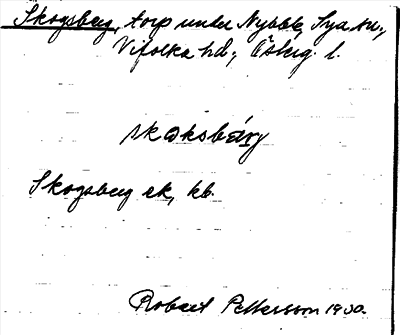 Skogsberg, torp under Nybble, Sya sn,
Vifolka hd., Österg. l.
skɷksbärj
Skogsberg ek, kb.
Robert Pettersson 1930.